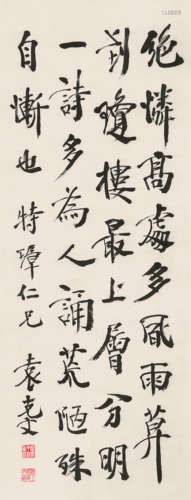 絶憐高處多風雨莫
到瓊樓最上層分明
一詩多為人誦荒陋殊
自慚也特璋仁兄
袁克文